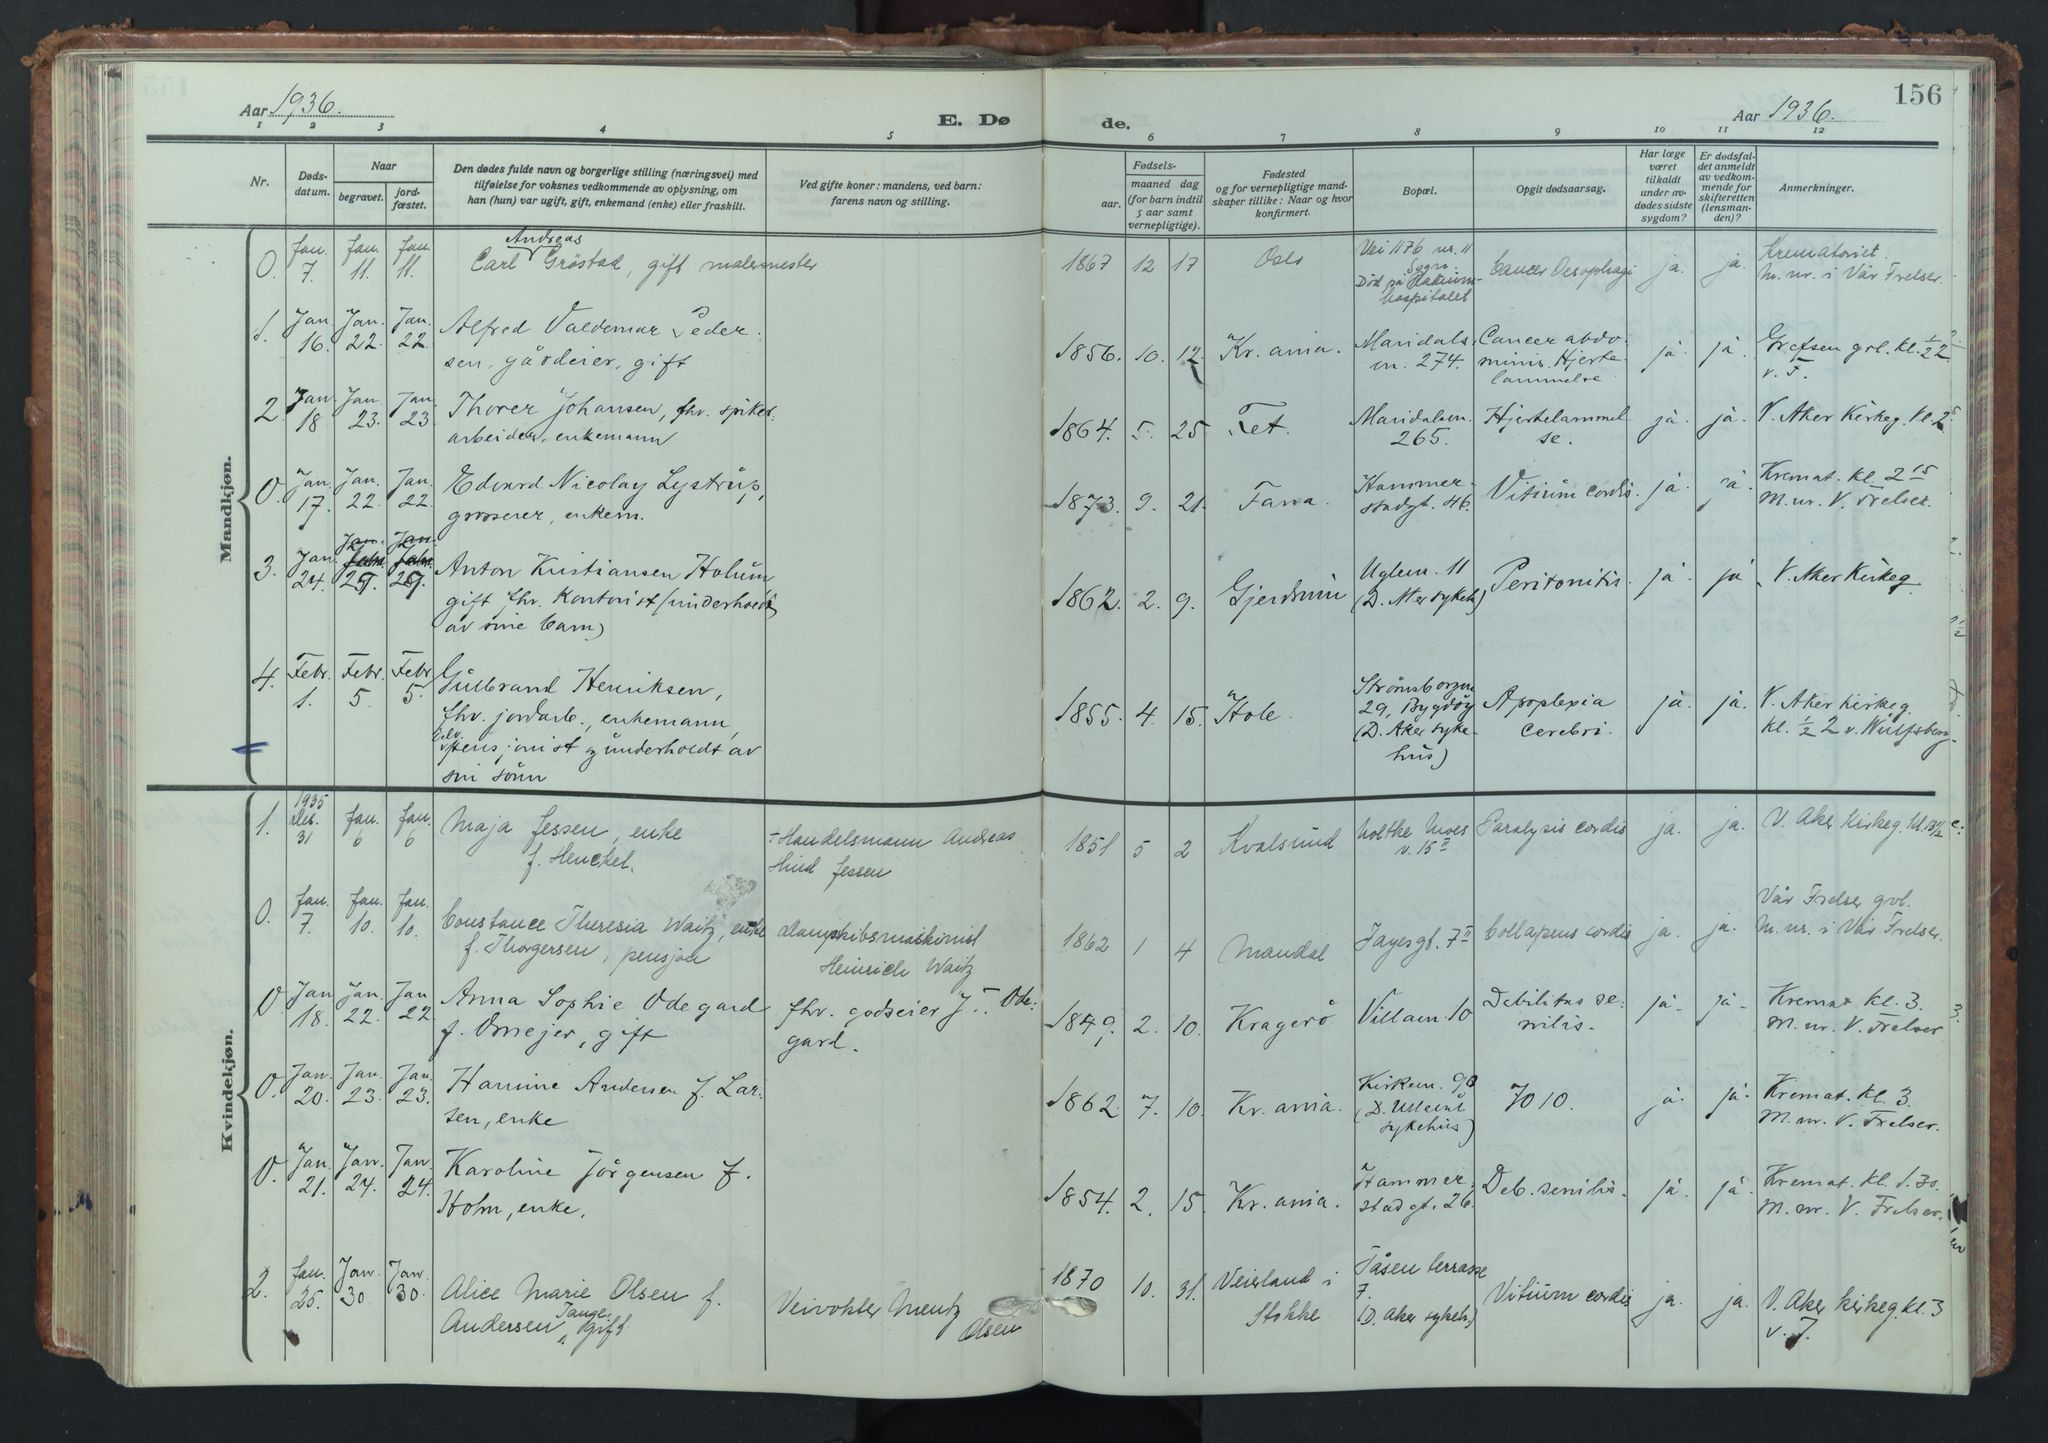 156
Aar 1936.
E. Døde.
Aar 1936.
1 2 3 4 5 6 7 8 9 10 11 12
Nr.
Døds-
datum.
Naar
begravet.
jord-
fæstet.
Den dødes fulde navn og borgerlige stilling (næringsvei) med
tilføielse for voksnes vedkommende av oplysning, om
han (hun) var ugift, gift, enkemand (enke) eller fraskilt.
Ved gifte koner: mandens, ved barn:
farens navn og stilling.
Fødsels-
aar.
maaned dag
(for barn indtil
5 aar samt
vernepligtige).
Fødested
og for vernepligtige mand-
skaper tillike: Naar og hvor
konfirmert.
Bopæl.
Opgit dødsaarsag.
Har læge
været
tilkaldt
under av-
dødes sidste
sygdom?
Er dødsfal-
det anmeldt
av vedkom-
mende for
skifteretten
(lensman-
den)?
Anmerkninger.
Mandkjøn.
0. Jan. 7. Jan. 11. Jan. 11.
Andreas
Carl Gröstad, gift malermester
1867 12 17 Oslo
Vei 1176 nr. 11
Sogn.
Död på Radium-
hospitalet
Cancer Oesophagi ja. ja.
Krematoriet.
M. nr. i Vår Frelser.
1. Jan. 16. Jan. 22. Jan. 22.
Alfred Valdemar Peder-
sen, gårdeier, gift
1856. 10. 12. Kr.ania.
Maridals-
v. 274.
Cancer abdo-
minis. Hjerte-
lammelse
ja. ja.
Grefsen grl. kl. 1/2 2
v. F.
2. Jan. 18 Jan. 23. Jan. 23.
Thorer Johansen, fhv. spiker-
arbeider, enkemann
1864. 5. 25. Fet.
Maridalsv.
265.
Hjertelammel-
se.
ja. ja.
V. Aker Kirkeg. kl.
0. Jan. 17. Jan. 22. Jan. 22.
Edvard Nicolay Lystrup,
grosserer, enkem.
1873. 9. 21. Fana.
Hammer-
stadgt. 46.
Vitium cordis ja. ja.
Kremat. kl. 2 15
M. nr. V. Frelser.
3. Jan. 24. Jan. 29. Jan. 29.
Anton Kristiansen Holum
gift fhv. Kontorist (underholdt
av sine barn)
1862. 2. 9. Gjerdrum
Uglev. 11
(D. Aker sykeh)
Peritonitis. ja. ja
V. Aker Kirkeg.
4. Febr. 1. Febr. 5. Febr. 5.
Gulbrand Henriksen,
fhv. jordarb., enkemann,
selv
pensjonist & underholdt av
sin sönn
1855. 4. 15. Hole.
Strömsborgv.
29, Bygdöy
(D. Aker syke-
hus)
Apoplexia
cerebri.
ja. ja.
V. Aker Kirkeg.
kl. 1/2 2 v. Wulfsberg
Kvindekjøn.
1. 1935 Des. 31 Jan. 6 Jan. 6
Maja Jessen, enke
f. Henckel.
+ Handelsmann Andreas
Hind Jessen
1851 5 2 Kvalsund
Moltke Moes
v. 15 II
Paralysis cordis ja. ja.
V. Aker Kirkeg. kl.
0. Jan. 7. Jan. 10. Jan. 10.
Constance Theresia Waitz, enke
f. Thorgersen, pensjon
dampskibsmaskinist
Heinrich Waitz
1862 1 4 Mandal
Jayesgt. 7 II
Collapens cordis ja. ja.
Vår Frelser grl.
M. nr. i Vår Frelser.
0 Jan 18. Jan. 22. Jan 22
Anna Sophie Odegard
f. Omejer, gift
fhv. godseier J. . Ode-
gard.
1849. 2. 10. Kragerö
Villav. 10
Debilitas se-
nilis.
ja. ja.
Kremat kl. 3.
M. nr. V. Frelser
0. Jan. 20. Jan. 23. Jan. 23.
Hanine Andersen f. Lar-
sen, enke
1862 7. 10. Kr.ania.
Kirkev. 90
(D. Ullevål
sykehus)
7010. ja. ja.
Kremat. kl. 3.
M. nr. V. Frelser.
0. Jan. 21. Jan. 24. Jan. 24.
Karoline Jörgensen f.
Holm, enke.
1854. 2. 15. Kr.ania.
Hammer-
stadgt. 26.
Deb. senilis. ja. ja.
Kremat. kl. 1.30.
M. nr. V. Frelser.
2. Jan. 25. Jan. 30 Jan. 30
Alice Marie Olsen f.
Tange.
Andersen, gift
Veivokter Mentz
Olsen
1870 10. 31. Veierland i
Stokke
Tåsen terrasse
7.
(D. Aker sykeh.)
Vitium cordis ja. ja.
V. Aker kirkeg. kl. 3
v. J.